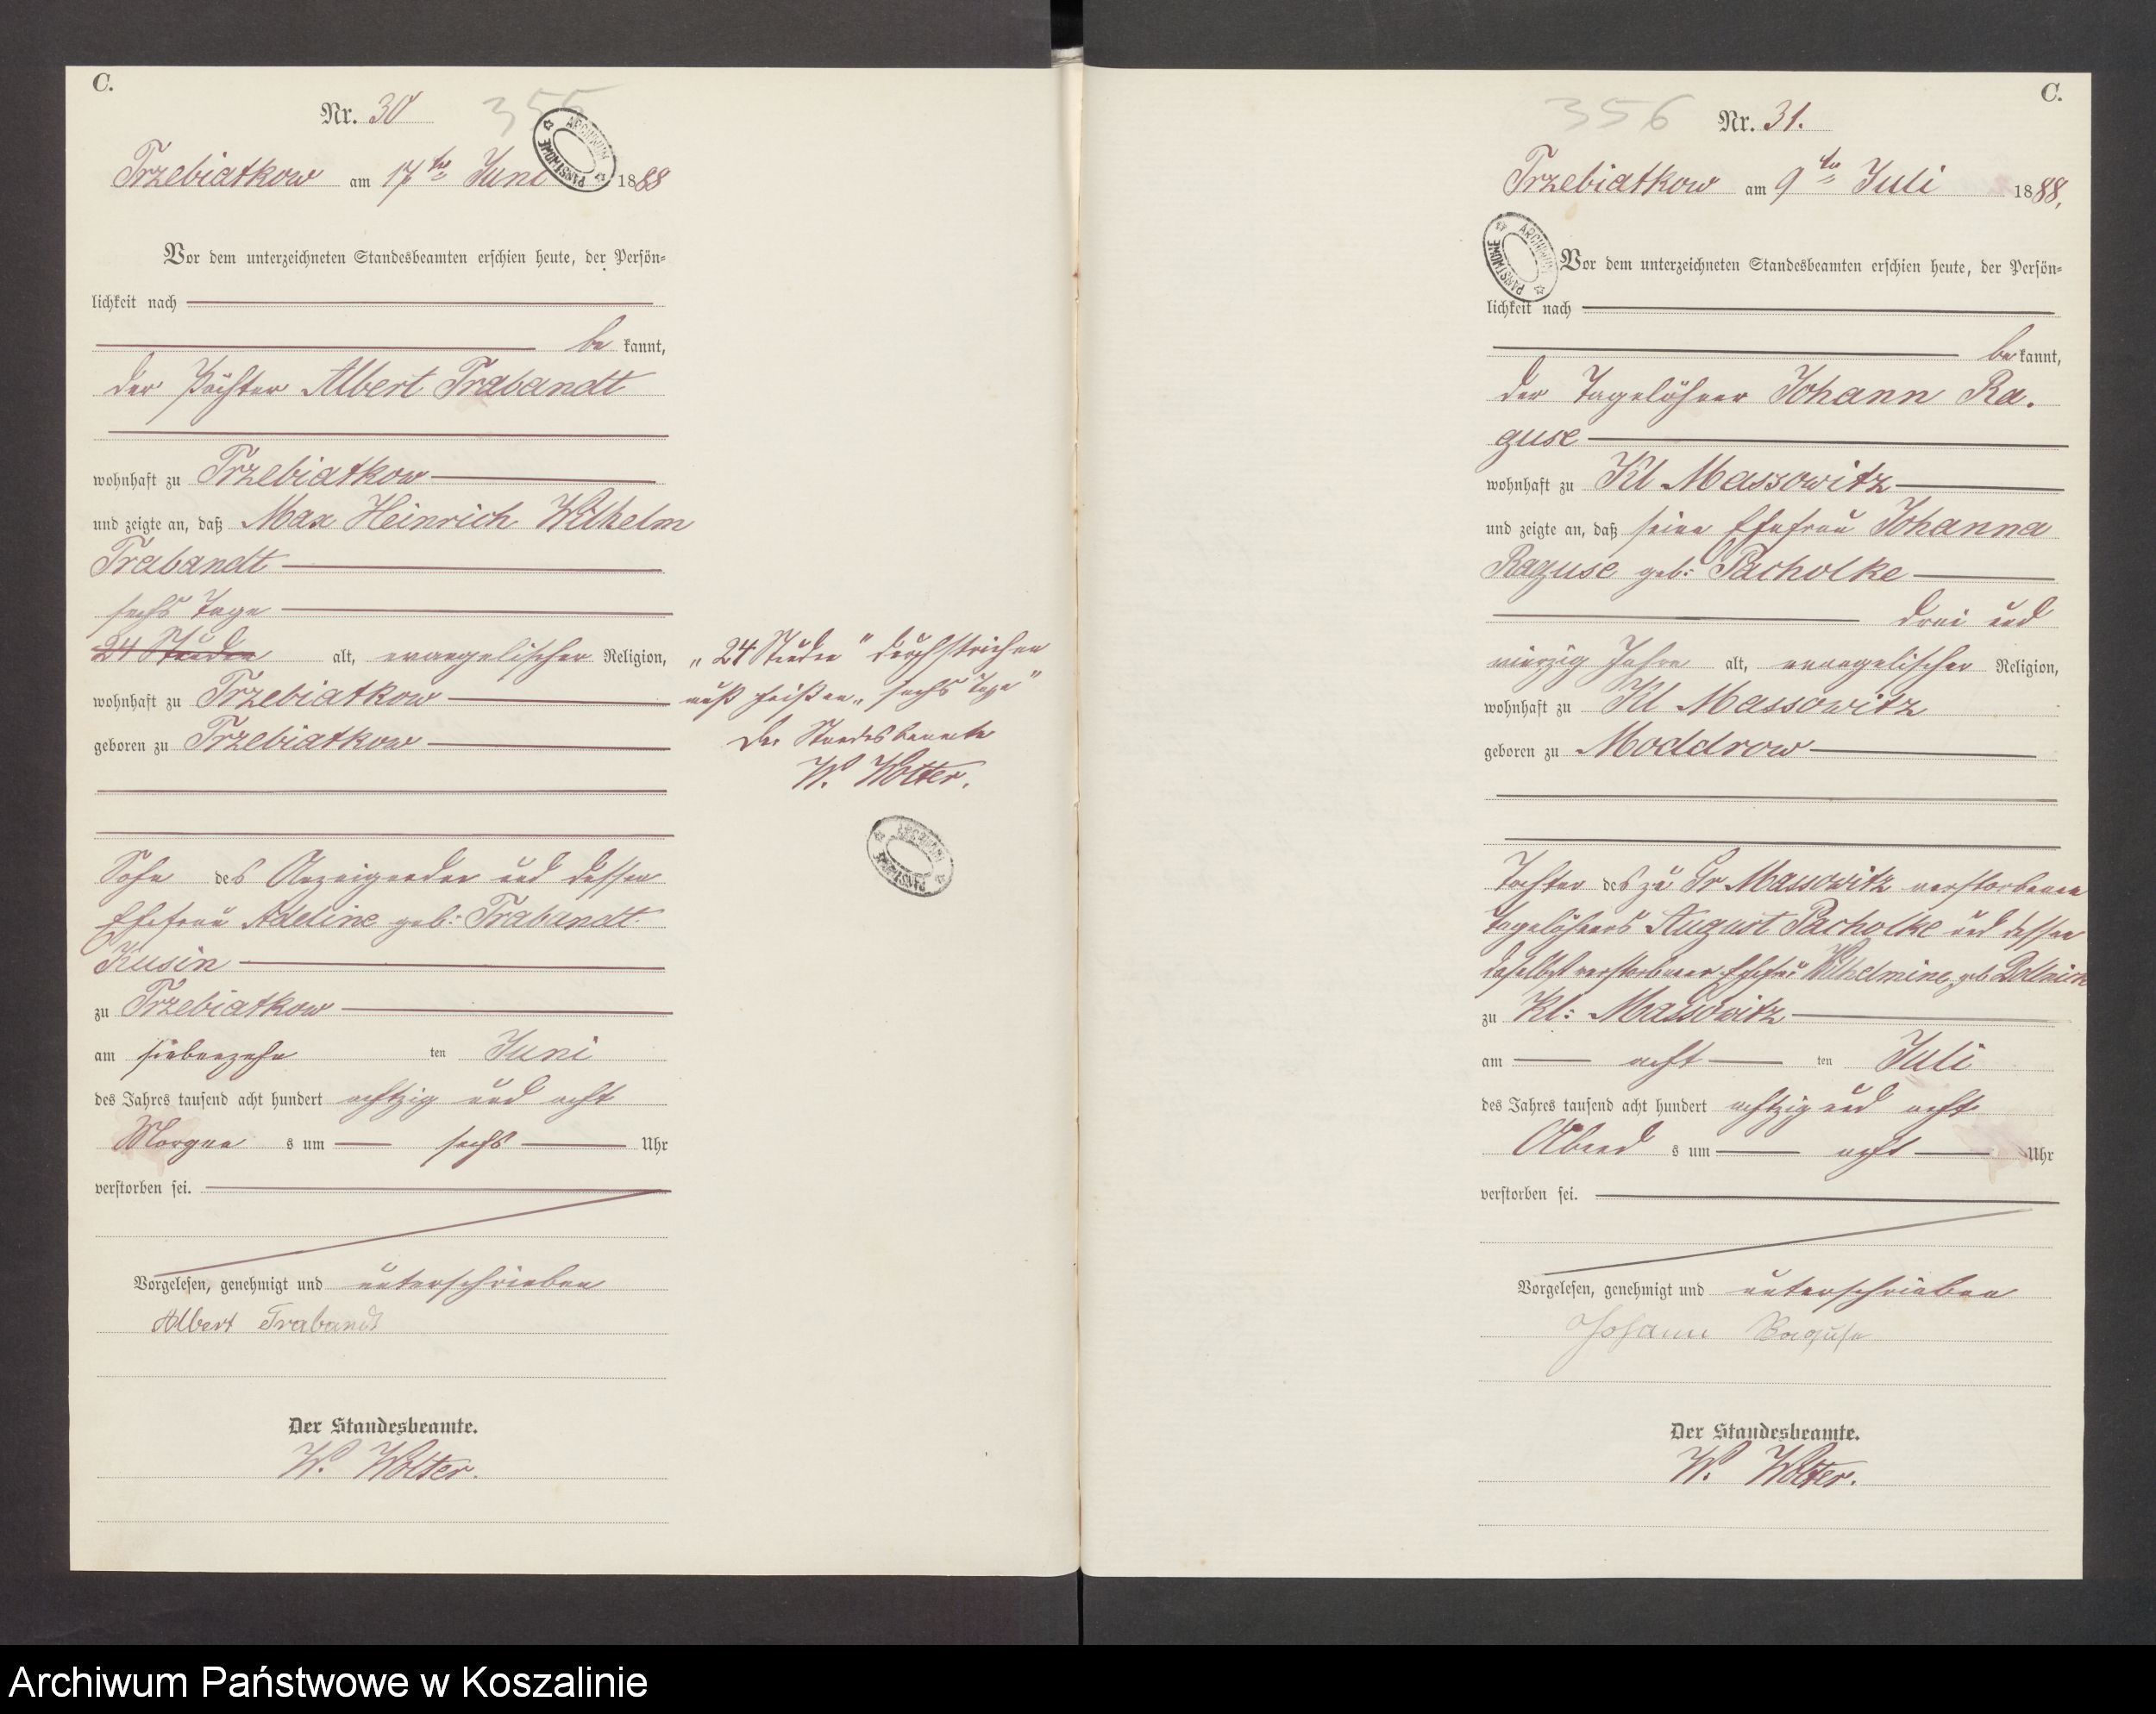 C.
Nr. 30
355
ARCHIWUM PAŃSTWOWE
Trzebiatkow am 17ten Juni 1888
Vor dem unterzeichneten Standesbeamten erschien heute, der Persön-
lichkeit nach
be kannt,
der Pächter Albert Trabandt
wohnhaft zu Trzebiatkow
und zeigte an, daß Max Heinrich Wilhelm
Trabandt
sechs Tage
24 Stunden alt, evangelischer Religion,
wohnhaft zu Trzebiatkow
geboren zu Trzebiatkow
Sohn des Anzeigenden und dessen
Ehefrau Adeline geb: Trabandt
Kusin
zu Trzebiatkow
am siebenzehn ten Juni
des Jahres tausend acht hundert achtzig und acht
Morgen s um sechs Uhr
verstorben sei.
Vorgelesen, genehmigt und unterschrieben
Albert Trabandt
Der Standesbeamte.
W. Wolter.
„24 Stunden" durchstrichen
muß heißen „sechs Tage"
Der Standesbeamte
W. Wolter.
ARCHIWUM PAŃSTWOWE
C.
356
Nr. 31.
Trzebiatkow am 9ten Juli 1888,
ARCHIWUM PAŃSTWOWE
Vor dem unterzeichneten Standesbeamten erschien heute, der Persön-
lichkeit nach
be kannt,
der Tagelöhner Johann Ra.
guse
wohnhaft zu Kl Massowitz
und zeigte an, daß seine Ehefrau Johanna
Raguse geb: Pacholke
drei und
vierzig Jahre alt, evangelischer Religion,
wohnhaft zu Kl Massowitz
geboren zu Moddrow
Tochter des zu Gr Massowitz verstorbenen
Tagelöhners August Pacholke und dessen
daselbst verstorbener Ehefrau Wilhelmine geb
zu Kl: Massowitz
am acht ten Juli
des Jahres tausend acht hundert achtzig und acht
Abend s um acht Uhr
verstorben sei.
Vorgelesen, genehmigt und unterschrieben
Johann Raguse
Der Standesbeamte.
W. Wolter.
Archiwum Państwowe w Koszalinie